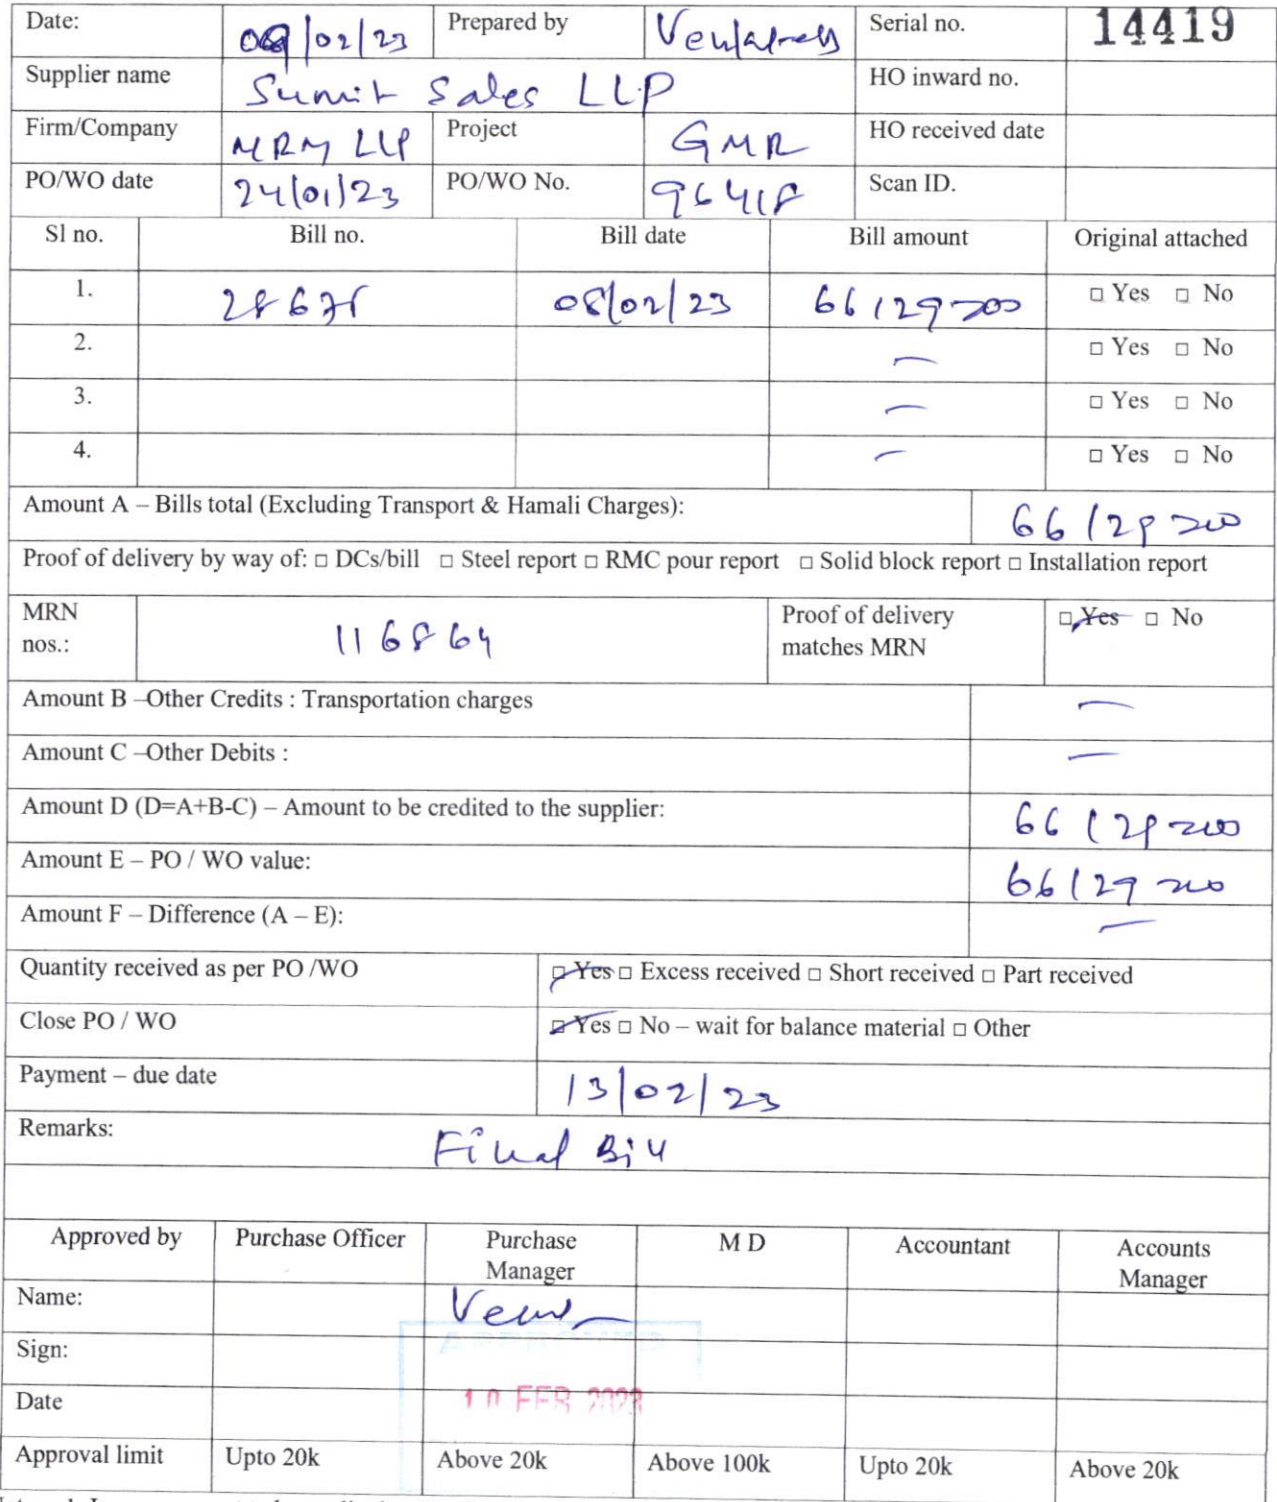 Date: 09/02/23 Prepared by Serial no. 14419
Supplier name Sumit Sales LLP HO inward no.
Firm/Company MRM LLP Project GMR HO received date
PO/WO date 24/01/23 PO/WO No. 96418 Scan ID.
Sl no. Bill no. Bill date Bill amount Original attached
1. 08/02/23 66129=00 □ Yes □ No
2. — □ Yes □ No
3. — □ Yes □ No
4. — □ Yes □ No
Amount A – Bills total (Excluding Transport & Hamali Charges): 66129=00
Proof of delivery by way of: □ DCs/bill □ Steel report □ RMC pour report □ Solid block report □ Installation report
MRN nos.: 116864 Proof of delivery matches MRN □ Yes □ No
Amount B –Other Credits : Transportation charges —
Amount C –Other Debits : —
Amount D (D=A+B-C) – Amount to be credited to the supplier: 66129=00
Amount E – PO / WO value: 66129=00
Amount F – Difference (A – E): —
Quantity received as per PO /WO □ Yes □ Excess received □ Short received □ Part received
Close PO / WO □ Yes □ No – wait for balance material □ Other
Payment – due date 13/02/23
Remarks: Final Bill
Approved by Purchase Officer Purchase Manager M D Accountant Accounts Manager
Name:
APPROVED
Sign:
Date 10 FEB 2023
Approval limit Upto 20k Above 20k Above 100k Upto 20k Above 20k